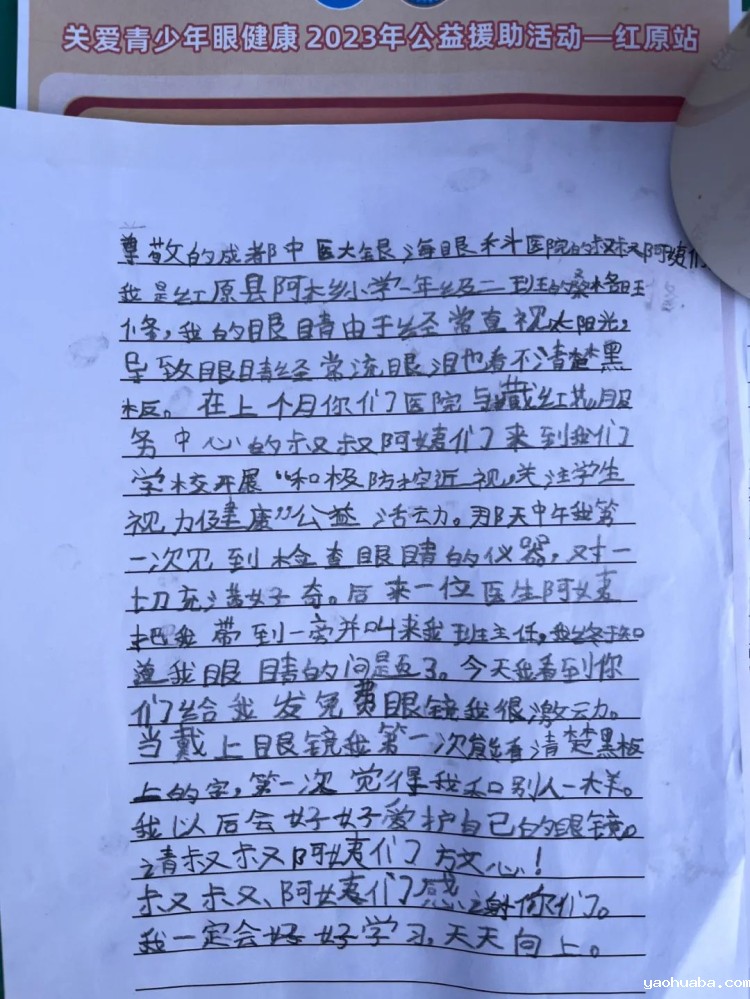 关爱青少年眼健康 2023年公益援助活动—红原站
尊敬的成都中医大银海眼科医院的叔叔阿姨们
我是红原县阿木乡小学一年级二班的桑格旺
修,我的眼睛由于经常直视太阳光,
导致眼睛经常流眼泪也看不清楚黑
板。在上个月你们医院与藏红花服
务中心的叔叔阿姨们来到我们
学校开展“积极防控近视,关注学生
视力健康”公益活动。那天中午我第
一次见到检查眼睛的仪器,对一
切充满好奇。后来一位医生阿姨
把我带到一旁并叫来我班主任,我终于知
道我眼睛的问是。今天我看到你
们给我发免费眼镜我很激动。
当戴上眼镜我第一次能看清楚黑板
上的字,第一次觉得我和别人一样。
我以后会好好爱护自己的眼镜。
请叔叔阿姨们放心!
叔叔、阿姨们感谢你们。
我一定会好好学习,天天向上。
yaohuaba.com